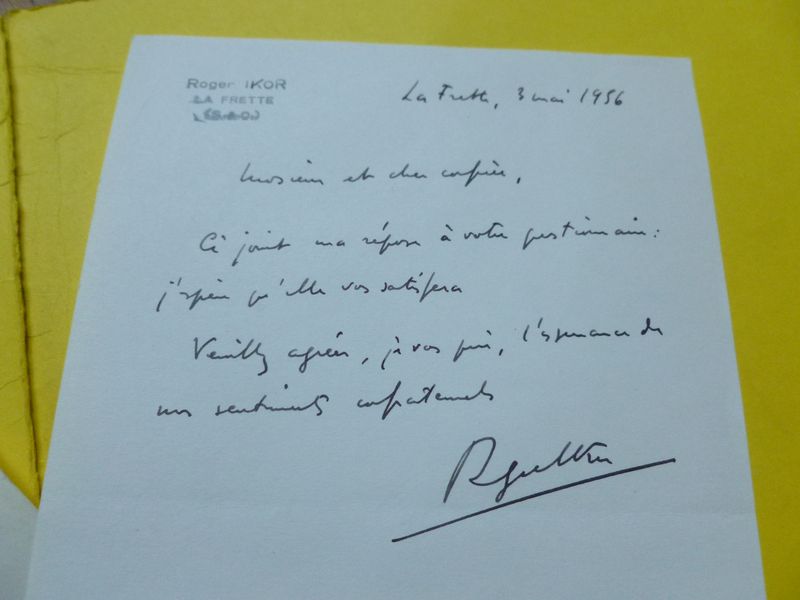 Roger IKOR
LA FRETTE
(S.&O.)
La Frette, 3 mai 1956
Monsieur et cher confrère,
Ci joint ma réponse à votre questionnaire :
j'espère qu'elle vous satisfera
Veuillez agréer, je vous prie, l'assurance de
mes sentiments confraternels